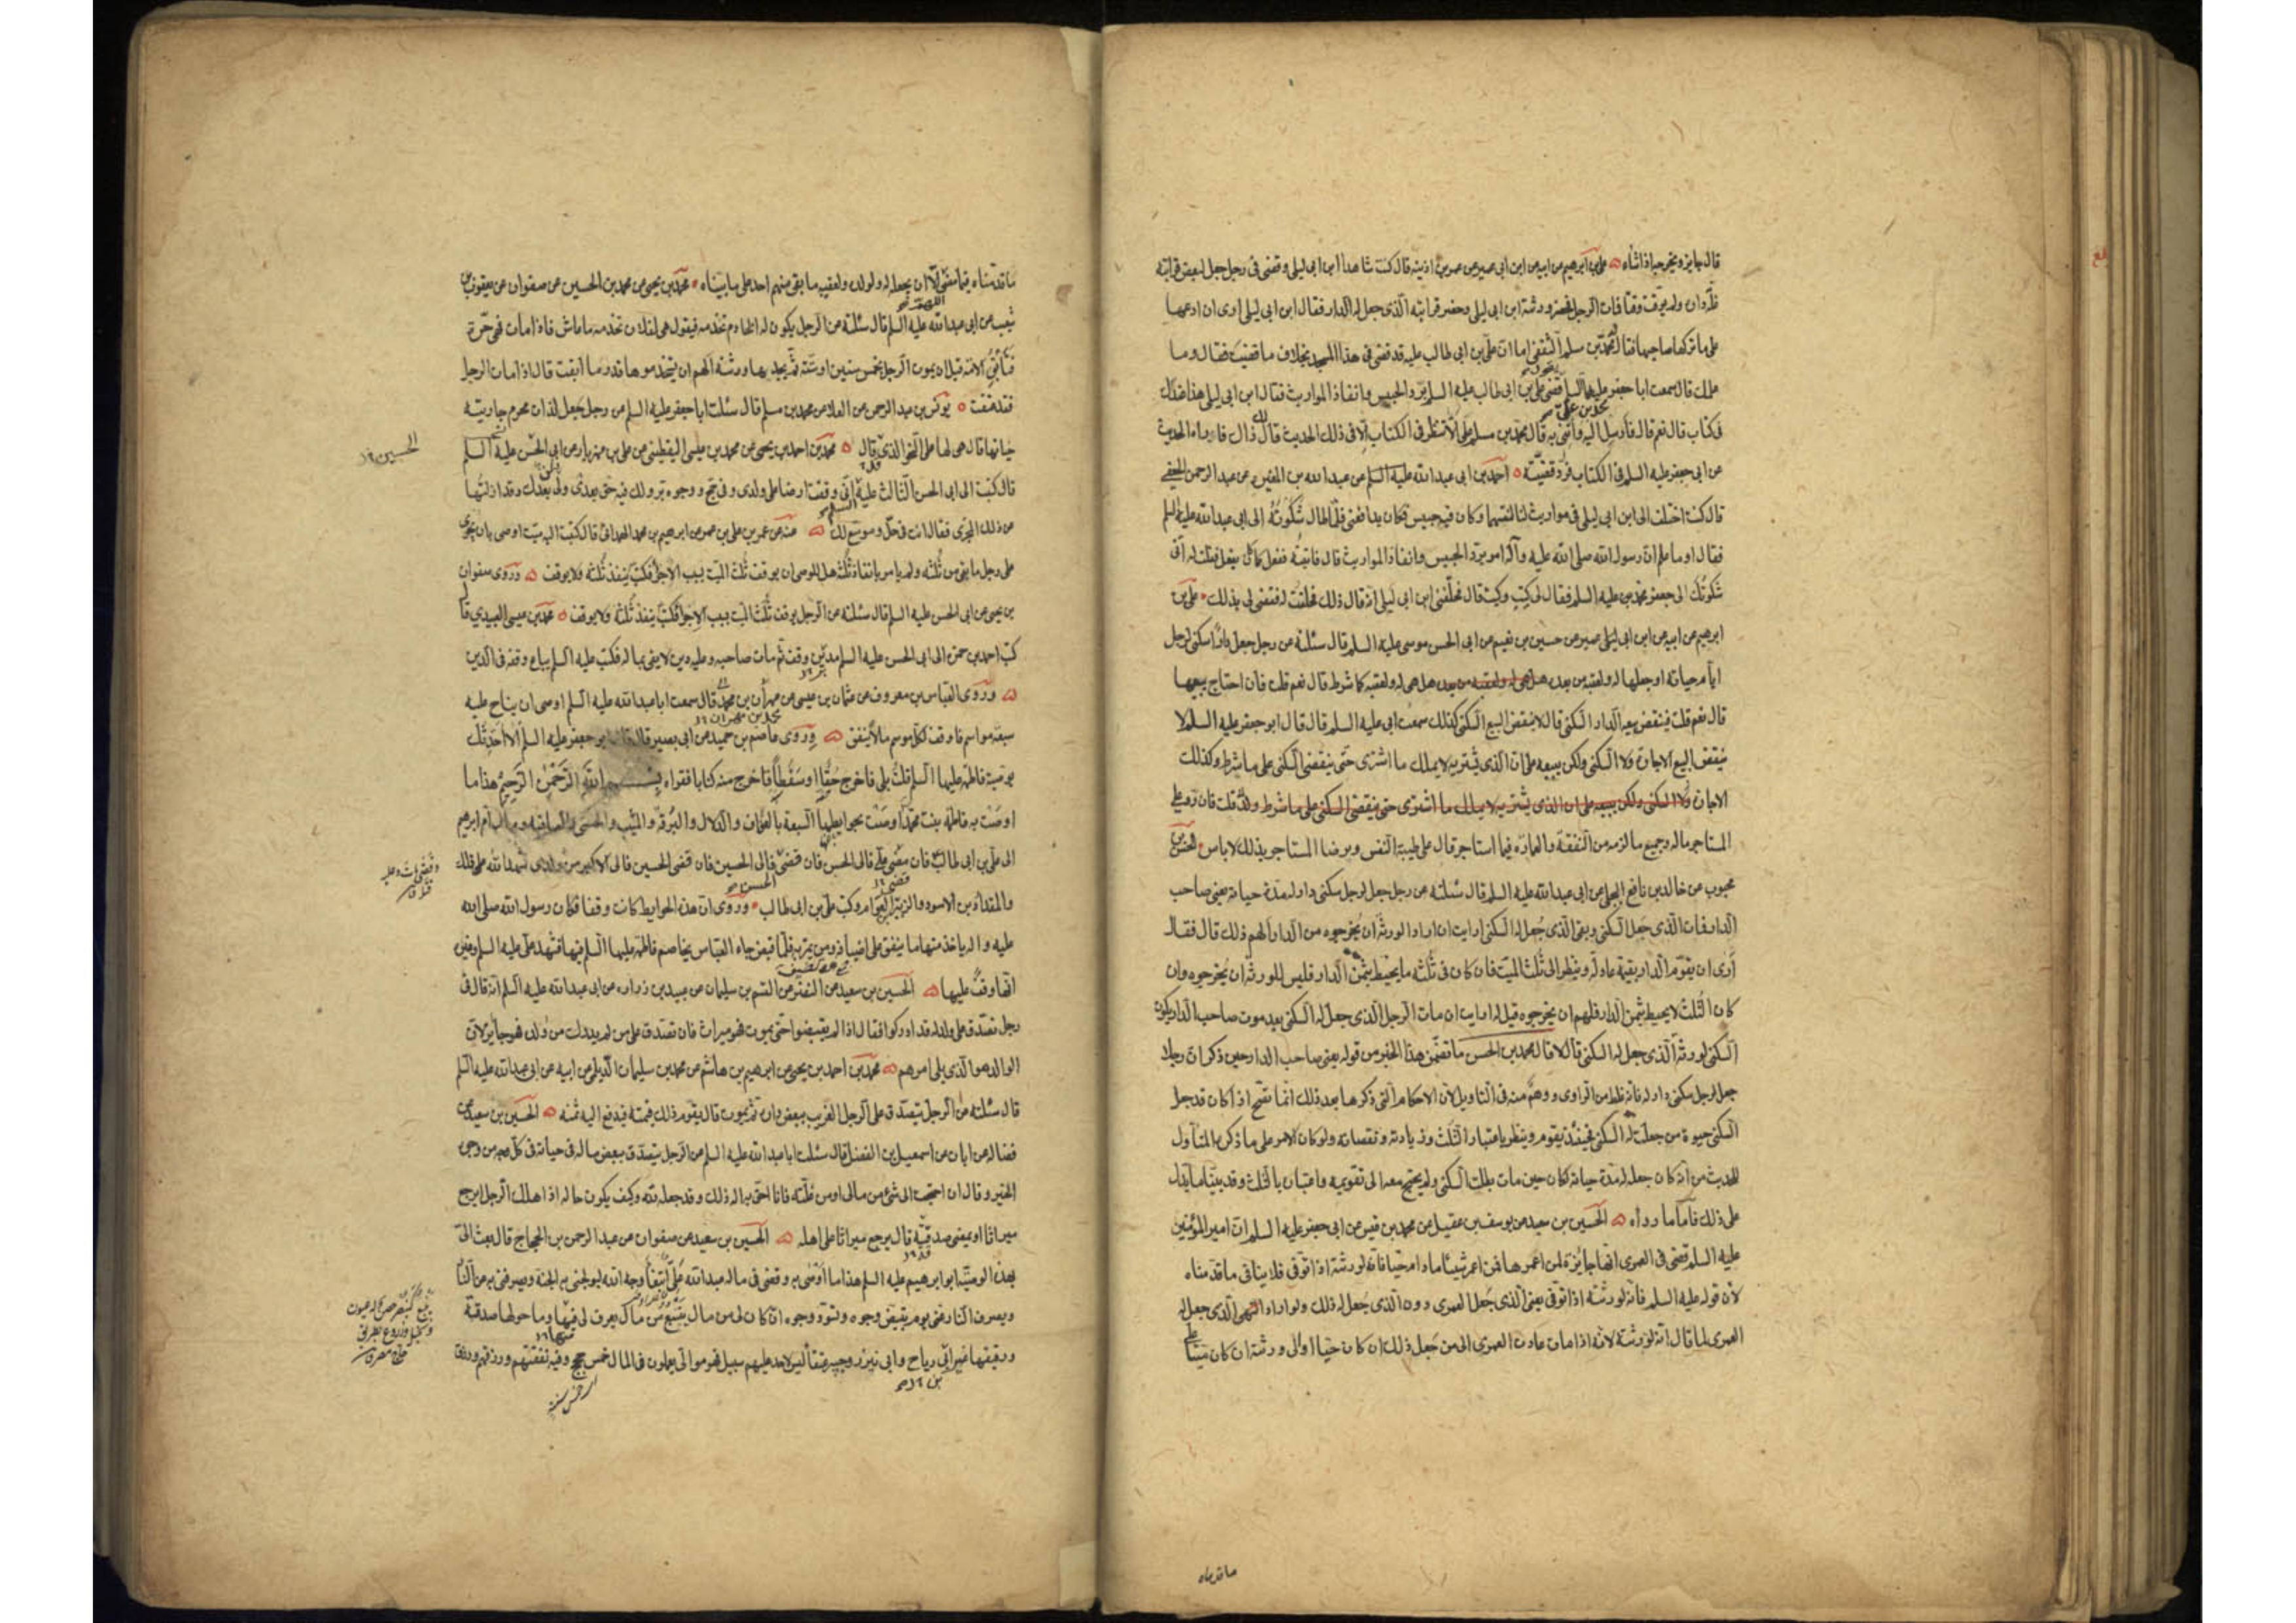 قال جايز ويخرجها اذا شاء ۵ علي بن ابرهيم عن ابيه عن ابن ابي عمير عن عمر بن اذينه قال كنت شاهدا ابن ابي ليلى وقضى في رجل جعل لبعض قرابته
غلة دان ولم يوقت وقتا فمات الرجل فحضر ورثته ابن ابي ليلى وحضر قرابته الذي جعل له الدار فقال ابن ابي ليلى ارى ان ادعها
على ما تركها صاحبها فقال له محمد بن مسلم الثقفي اما ان علي بن ابي طالب عليه قد قضى في هذا المسجد بخلاف ما قضيت فقال وما
علمك قال سمعت ابا جعفر عليهما السلم يقول قضى علي بن ابي طالب عليه السلم برد الحبيس وانفاذ المواريث فقال ابن ابي ليلى هذا عندك
في كتاب قال نعم قال فأرسل اليه وائتني به قال محمد بن مسلم على ان لا تنظر في الكتاب الا في ذلك الحديث قال لك ذاك فاراه الحديث
عن ابي جعفر عليه السلم في الكتاب فرد قضيته ۵ احمد بن ابي عبد الله عليه السلم عن عبد الله بن المغيره عن عبد الرحمن الجعفي
قال كنت اختلف الى ابن ابي ليلى في مواريث لنا لنقسمها وكان فيه حبيس فكان يدافعني فلما طال شكوته الى ابي عبد الله عليه السلم
فقال اوما علم ان رسول الله صلى الله عليه وآله امر برد الحبيس وانفاذ المواريث قال فاتيته ففعل كما كان يفعل فقلت له اني
شكوتك الى جعفر بن محمد عليه السلم فقال لي كيت وكيت قال فحلفني ابن ابي ليلى انه قال ذلك فحلفت له فقضى لي بذلك ۰ علي بن
ابرهيم عن ابيه عن ابن ابي ليلى عمير عن حسين بن نعيم عن ابي الحسن موسى عليه السلم قال سئلته عن رجل جعل دارا سكنى لرجل
ايام حياته او جعلها له ولعقبه من بعده هل هي له ولعقبه من بعده هل هي له ولعقبه كما شرط قال نعم قلت فان احتاج يبيعها
قال نعم قلت فينقض بيعه الدار السكنى قال لا ينقض البيع السكنى كذلك سمعت ابي عليه السلم قال قال ابو جعفر عليه السلم لا
ينقض البيع الاجارة ولا السكنى ولكن يبيعه على ان الذي يشتريه لا يملك ما اشترى حتى ينقضي السكنى على ما شرط وكذلك
الاجارة ولا السكنى ولكن يبيعه على ان الذي يشتريه لا يملك ما اشترى حتى ينقضي السكنى على ما شرط ولك قلت فان رد على
المستاجر ماله وجميع ما لزمه من النفقة والعمارة فيما استاجر قال على طيبة النفس وبرضا المستاجر بذلك لا باس ۰ الحسن بن
محبوب عن خالد بن نافع البجلي عن ابي عبد الله عليه السلم قال سئلته عن رجل جعل لرجل سكنى دار له مدة حياته يعني صاحب
الدار فمات الذي جعل السكنى وبقي الذي جعل له السكنى ارايت ان اراد الورثة ان يخرجوه من الدار الهم ذلك قال فقال
أرى ان يقوم الدار بقيمة عادلة وينظر الى ثلث الميت فان كان في ثلثه ما يحيط بثمن الدار فليس للورثة ان يخرجوه وان
كان الثلث لا يحيط بثمن الدار فلهم ان يخرجوه قيل له ارايت ان مات الرجل الذي جعل له السكنى بعد موت صاحب الدار يكون
السكنى لورثة الذي جعل له السكنى قال لا قال محمد بن الحسن ما تضمن هذا الخبر من قوله يعني صاحب الدار حين ذكر ان رجلا
جعل لرجل سكنى دار له فانه غلط من الراوى ووهم منه في التاويل لان الاحكام التي ذكرها بعد ذلك انما تصح اذا كان قد جعل
السكنى حيوة من جعلت له السكنى فحينئذ يقوم وينظر باعتبار الثلث وزيادته ونقصانه ولو كان الامر على ما ذكره المتاول
للحديث من انه كان جعله له مدة حياته لكان حين مات بطلت السكنى ولم يحتج معه الى تقويمه واعتباره بالثلث وقد بينا ما يدل
على ذلك فاما ما رواه ۵ الحسين بن سعيد عن يوسف بن عقيل عن محمد بن قيس عن ابي جعفر عليه السلم ان امير المؤمنين
عليه السلم قضى في العمرى انها جايزة لمن اعمرها فمن اعمر شيئا ما دام حيا فانه لورثته اذا توفى فلا ينافي ما قدمناه
لان قوله عليه السلم فانه لورثته اذا توفى يعني الذي جعل العمرى دون الذي جعل له ذلك ولو اراد الذي جعل له
العمرى لما قال انه لورثته لانه اذا مات عادت العمرى الى من جعل ذلك ان كان حيا او الى ورثته ان كان ميتا على
ما قدمناه
ما قدمناه فيما مضى الا ان يجعل له ولولده ولعقبه ما بقي منهم احد على ما بيناه ۰ محمد بن يحيى عن محمد بن الحسين عن صفوان عن يعقوب بن
شعيب عن ابي عبد الله عليه السلم قال سئلته عن الرجل يكون له الخادم تخدمه فيقول هي لفلان تخدمه ما عاش فاذا مات فهي حرة
فتأبق الامة قبل ان يموت الرجل بخمس سنين او ستة ثم يجدها ورثته الهم ان يستخدموها قدر ما ابقت قال اذا مات الرجل
فقد عتقت ۵ يونس بن عبد الرحمن عن العلا عن محمد بن مسلم قال سئلت ابا جعفر عليه السلم عن رجل جعل لذات محرم جاريته
حياتها قال هي لها على النحو الذي قال ۵ محمد بن احمد بن يحيى عن محمد بن عيسى اليقطيني عن علي بن مهزيار عن ابي الحسن عليه السلم
الحسين
قال كتبت الى ابي الحسن الثالث عليه السلم اني وقفت ارضا على ولدى وفي حج ووجوه بر ولك فيه حق بعدى ولي بعدك وقد ازلتها
عن ذلك المجرى فقال انت في حل وموسع لك ۵ عنه عن عمر بن علي بن عمر عن ابرهيم بن محمد الهمداني قال كتبت اليه ميت اوصى بان يجرى
على رجل ما بقي من ثلثه ولم يامر بانفاذ ثلثه هل للوصي ان يوقف ثلث الميت بسبب الاجراء فكتب ينفذ ثلثه ولا يوقف ۵ وروى صفوان
بن يحيى عن ابي الحسن عليه السلم قال سئلته عن الرجل يوقف ثلث الميت بسبب الاجراء فكتب ينفذ ثلثه ولا يوقف ۵ محمد بن عيسى العبيدي قال
كتب احمد بن حمزة الى ابي الحسن عليه السلم مدين وقف ثم مات صاحبه وعليه دين لا يفي بماله فكتب عليه السلم يباع وقفه في الدين
۵ وروى العباس بن معروف عن عثمان بن عيسى عن مهران بن محمد قال سمعت ابا عبد الله عليه السلم اوصى ان يناح عليه
محمد بن مهران
سبعة مواسم فاوقف لكل موسم مالا ينفق ۵ وروى عاصم بن حميد عن ابي بصير قال قال ابو جعفر عليه السلم الا احدثك
بوصية فاطمة عليها السلم قلت بلى فاخرج حقا او سفطا فاخرج منه كتابا فقراه بسم الله الرحمن الرحيم هذا ما
اوصت به فاطمة بنت محمد اوصت بحوايطها السبعة بالعواف والدلال والبرقة والميثب والحسنى والصافيه ومال ام ابرهيم
الى علي بن ابي طالب فان مضى علي فالى الحسن فان قضى فالى الحسين فان قضى الحسين فالى الاكبر من ولدى شهد الله على ذلك
والمقداد بن الاسود والزبير بن العوام وكتب علي بن ابي طالب ۰ وروى ان هذه الحوايط كانت وقفا فكان رسول الله صلى الله
عليه واله ياخذ منها ما ينفق على اضيافه ومن يمر به فلما قبض جاء العباس يخاصم فاطمة عليها السلم فيها فشهد علي عليه السلم وغيره
انها وقف عليها ۵ الحسين بن سعيد عن النضر عن القسم بن سليمان عن عبيد بن زراره عن ابي عبد الله عليه السلم انه قال في
رجل تصدق على ولد له قد ادركوا فقال اذا لم يقبضوا حتى يموت فهو ميراث فان تصدق على من لم يدرك من ولده فهو جايز لان
الوالد هو الذي يلي امرهم ۵ محمد بن احمد بن يحيى عن ابرهيم بن هاشم عن محمد بن سليمان الديلمي عن ابيه عن ابي عبد الله عليه السلم
قال سئلته عن الرجل يتصدق على الرجل الغريب ببعض داره ثم يموت قال يقوم ذلك قيمته فيدفع اليه ثمنه ۵ الحسين بن سعيد عن
فضاله عن ابان عن اسمعيل بن الفضل قال سئلت ابا عبد الله عليه السلم عن الرجل يتصدق ببعض ماله في حياته في كل وجه من وجوه
الخير وقال ان احتجت الى شيء من مالي او من غلته فانا احق به اله ذلك وقد جعله لله وكيف يكون حاله اذا هلك الرجل ايرجع
ميراثا او يمضي صدقة قال يرجع ميراثا على اهله ۵ الحسين بن سعيد عن صفوان عن عبد الرحمن بن الحجاج قال بعث الى
بهذه الوصية ابو ابرهيم عليه السلم هذا ما اوصى به وقضى في ماله عبد الله علي ابتغاء وجه الله ليولجني به الجنة ويصرفني به عن النار
ويصرف النار عني يوم تبيض وجوه وتسود وجوه ان ما كان لي من مال بينبع من مال يعرف لي فيها وما حولها صدقة
ورقيقها غير ابي رياح وابي نيزر وجبير عتقا ليس لاحد عليهم سبيل فهم موالي يعملون في المال خمس حجج وفيه نفقتهم ورزقهم ورزق